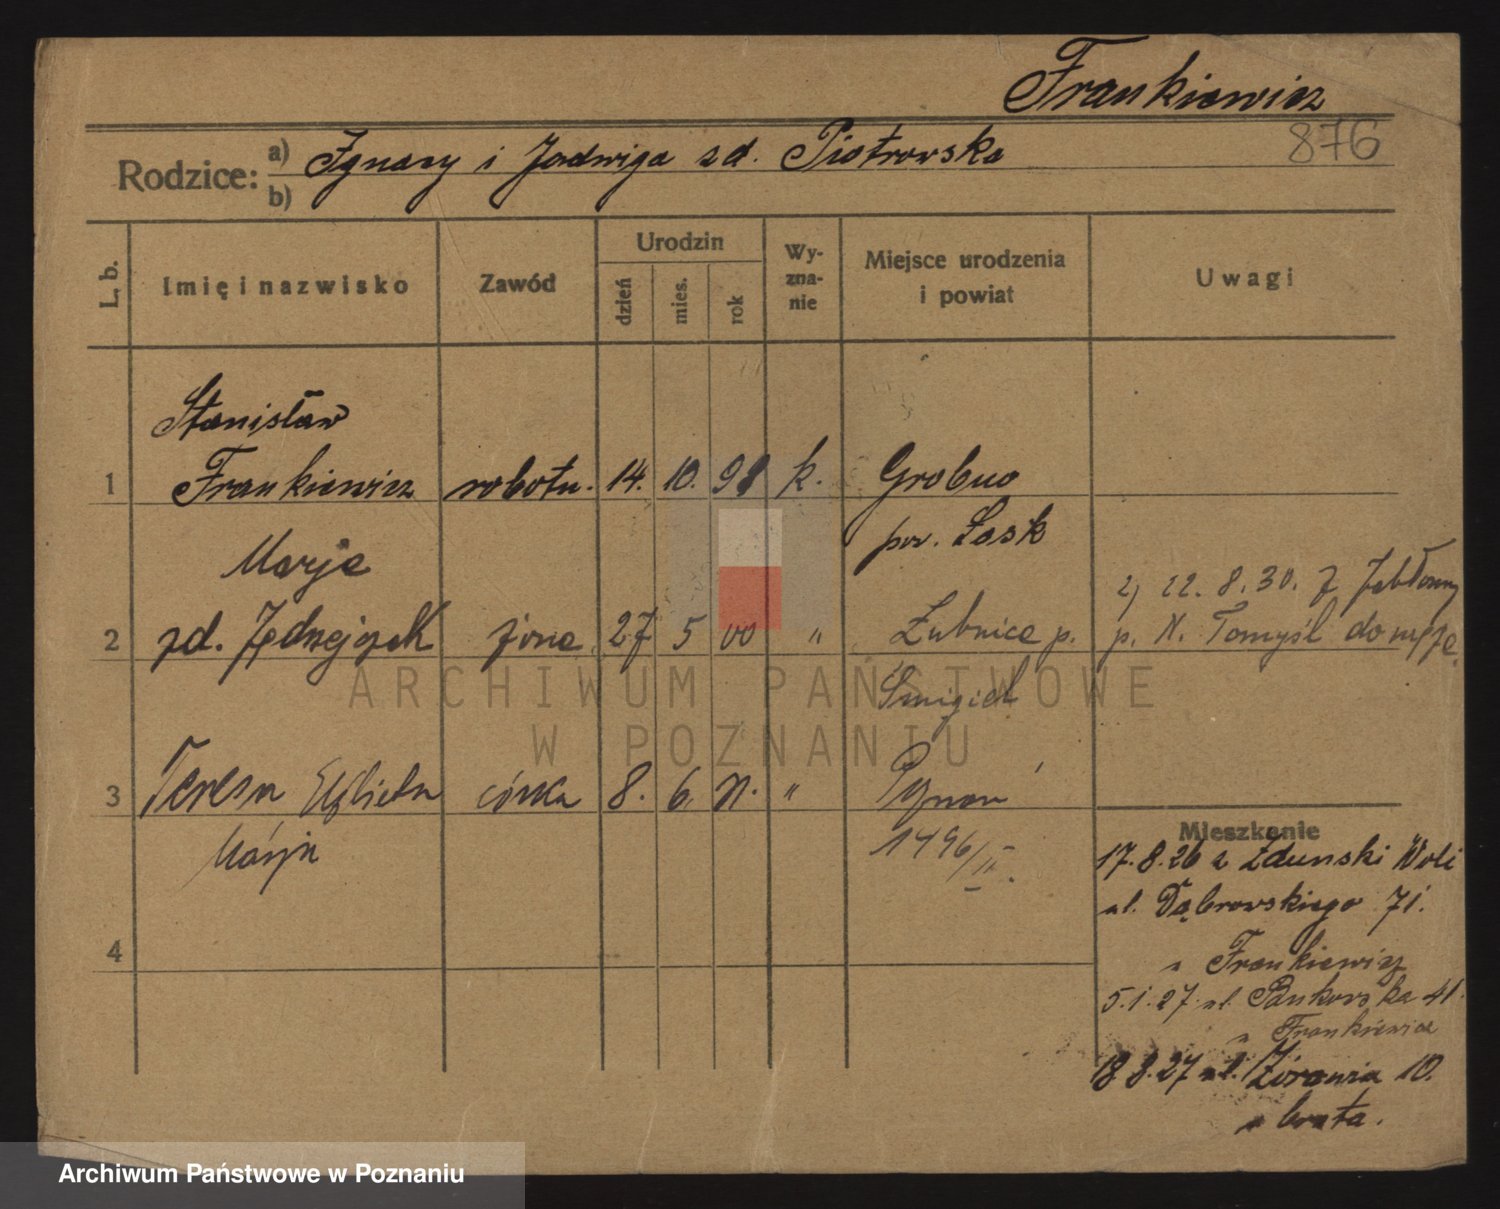 Frankiewicz
876
Rodzice: a) Ignacy i Jadwiga zd. Piotrowska
b)
L. b.
Imię i nazwisko
Zawód
Urodzin
dzień
mies.
rok
Wy-
zna-
nie
Miejsce urodzenia
i powiat
Uwagi
Stanisław
1 Frankiewicz robotn. 14. 10. 98 k. Grobno
pow. Łask
Marja
2) 22. 8. 30. z Jabłonny
2 zd. Jędrzejczak żona 27 5 00 " Łubnica p. p. N. Tomyśl do męża.
Śmigiel
3 Teresa Elżbieta córka 8. 6. " Poznań
Marja
1496/II.
Mieszkanie
17.8.26 z Zduński Woli
ul. Dąbrowskiego 71.
u Frankiewicz
4
5.1.27 ul. Bukowska 41.
u Frankiewicz
18.8.27 ul. Żórawia 10.
u brata.
ARCHIWUM PAŃSTWOWE
W POZNANIU
Archiwum Państwowe w Poznaniu